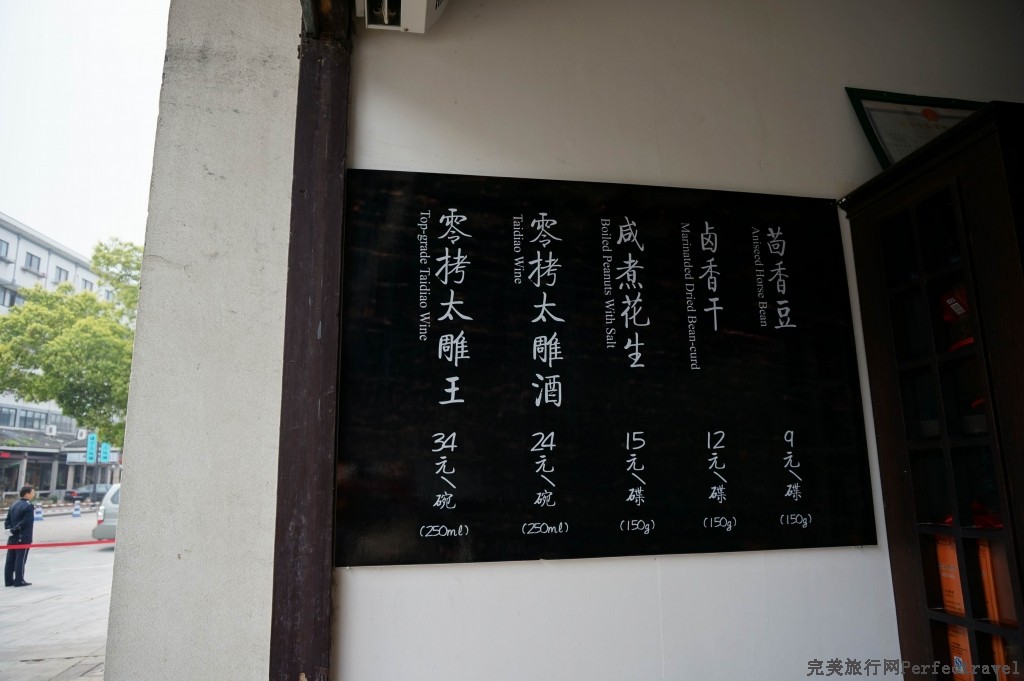 茴香豆
Aniseed Horse Bean
9元/碟
(150g)
卤香干
Marinatded Dried Bean-curd
12元/碟
(150g)
咸煮花生
Boiled Peanuts With Salt
15元/碟
(150g)
零拷太雕酒
Taidiao Wine
24元/碗
(250ml)
零拷太雕王
Top-grade Taidiao Wine
34元/碗
(250ml)
完美旅行网PerfectTravel